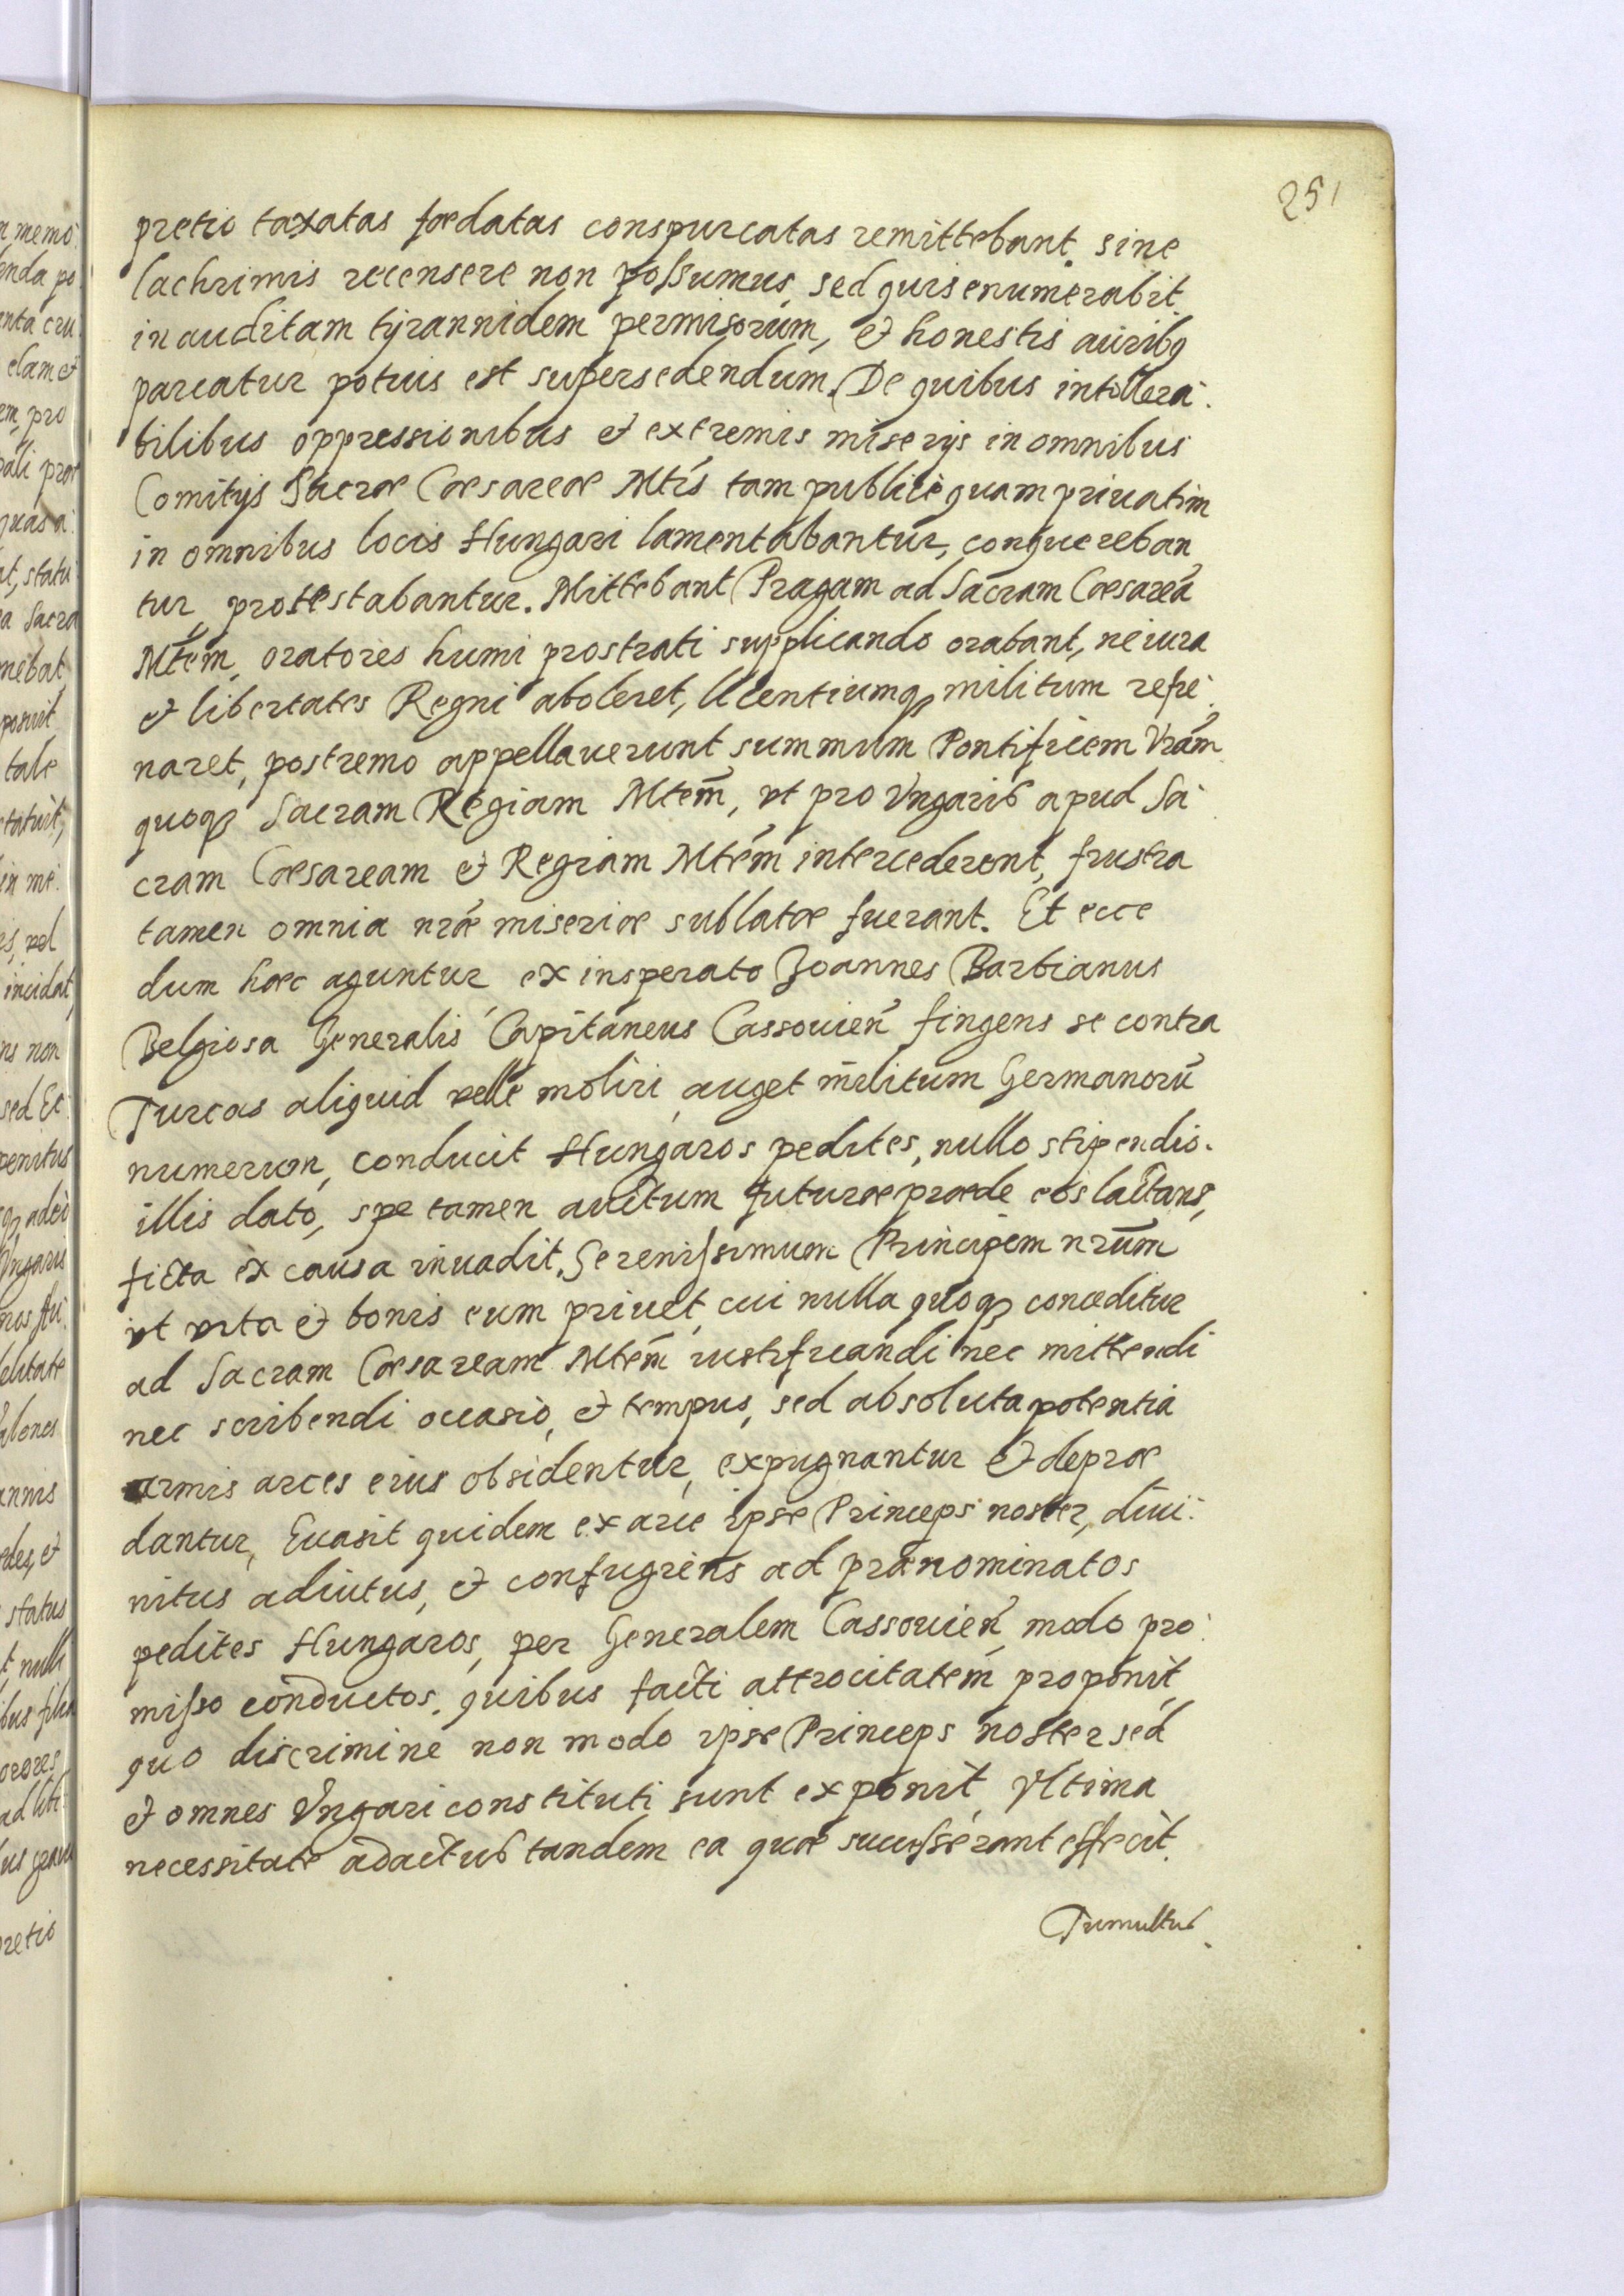 251
pretio taxatas foedatas conspurcatas remittebant. sine
lachrimis recensere non possumus, sed quis enumerabit
inauditam tyrannidem permisorum, et honestis auribq
parcatur potius est supersedendum. De quibus intollera:
bilibus oppressionibus et extremis miserijs in omnibus
Comitijs Sacrae Caesareae Mtis tam publice quam priuatim
in omnibus locis Hungari lamentabantur, conquereban
tur, protestabantur. Mittebant Pragam ad Sacram Caesareā
Mtem, oratores humi prostrati supplicando orabant, ne iura
et libertates Regni aboleret, licentiumq militum refre:
naret, postremo appellauerunt summum Pontificem Vram
quoq Sacram Regiam Mtem, vt pro Vngaris apud Sa:
cram Caesaream et Regiam Mtem intercederent, frustra
tamen omnia nrae miseriae sublatae fuerant. Et ecce
dum haec aguntur ex insperato Joannes Barbianus
Belgiosa Generalis Capitaneus Cassouien fingens se contra
Turcas aliquid velle moliri, auget militum Germanorū
numerum, conducit Hungaros pedites, nullo stipendio.
illis dato, spe tamen auitum futurae praede eos lactans,
ficta ex causa inuadit. Serenissimum Principem nrum
vt vita et bonis eum priuet, cui nulla quoq conceditur
ad Sacram Caesaream Mtem iustificandi nec mittendi
nec scribendi occasio, et tempus, sed absoluta potentia
armis arces eius obsidentur, expugnantur et deprae
dantur, Euasit quidem ex arce ipse Princeps noster, diui:
nitus adiutus, et confugiens ad praenominatos
pedites Hungaros, per Generalem Cassouien modo pro:
misso conductos, quibus facti attrocitatem proponit,
quo discrimine non modo ipse Princeps noster sed
et omnes Vngari constituti sunt exponit, Vltima
necessitate adactus tandem ea quae successerant effecit.
Tumultus